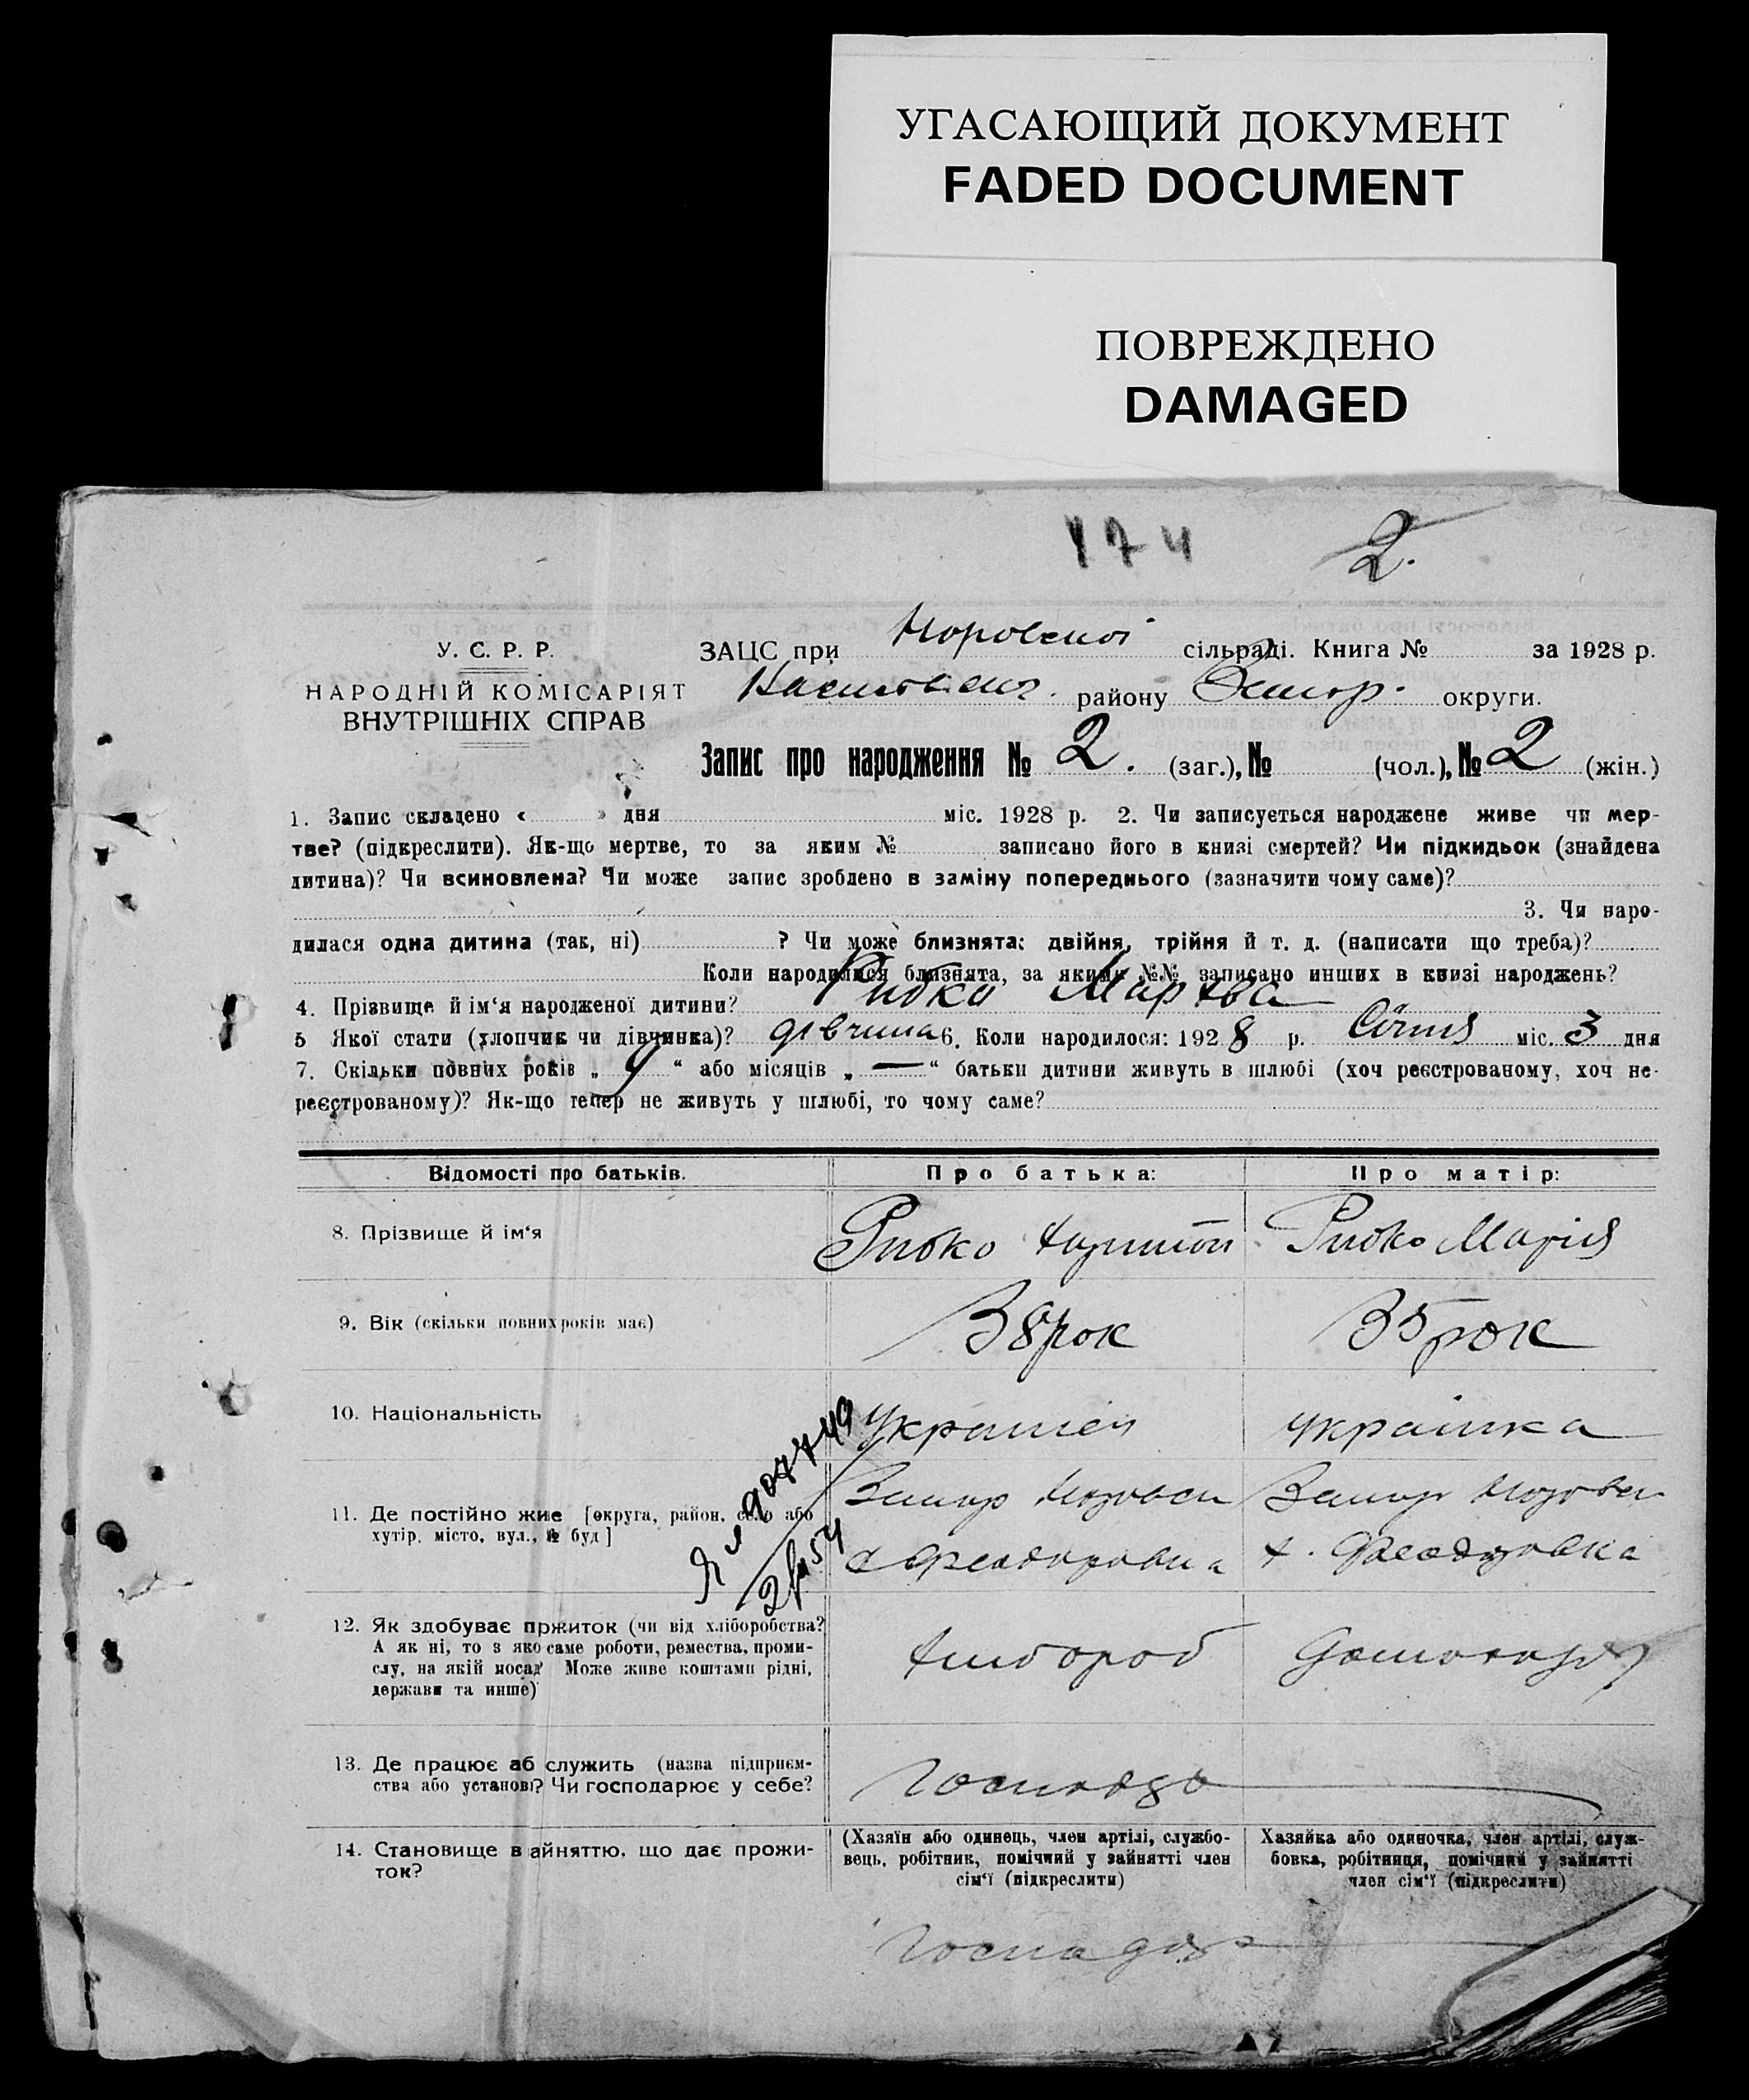 УГАСАЮЩИЙ ДОКУМЕНТ
FADED DOCUMENT
ПОВРЕЖДЕНО
DAMAGED
174 2.
У. С. Р. Р.
НАРОДНІЙ КОМІСАРІЯТ
ВНУТРІШНІХ СПРАВ
ЗАЦС при сільраді. Книга № за 1928 р.
району Запор. округи.
Запис про народження № 2. (заг.), № (чол.), № 2 (жін.)
1. Запис складено « » дня міс. 1928 р. 2. Чи записується народжене живе чи мер-
тве? (підкреслити). Як-що мертве, то за яким № записано його в книзі смертей? Чи підкидьок (знайдена
дитина)? Чи всиновлена? Чи може запис зроблено в заміну попереднього (зазначити чому саме)?
3. Чи наро-
дилася одна дитина (так, ні) ? Чи може близнята: двійня, трійня й т. д. (написати що треба)?
Коли народилися близнята, за якими №№ записано инших в книзі народжень?
4. Прізвище й ім'я народженої дитини? Рибко Марфа
5 Якої стати (хлопчик чи дівчинка)? дівчина 6. Коли народилося: 1928 р. Січня міс. 3 дня
7. Скільки повних років „ 9 “ або місяців „ — “ батьки дитини живуть в шлюбі (хоч реєстрованому, хоч не-
реєстрованому)? Як-що тепер не живуть у шлюбі, то чому саме?
Відомості про батьків. Про батька: Про матір:
8. Прізвище й ім'я Рибко Рибко Марія
9. Вік (скільки повних років має) 38 рок 35 рок
10. Національність Українец українка
11. Де постійно живе [округа, район, село або
хутір, місто, вул., № буд] Запор Запор
х. Феодоровка
12. Як здобуває пржиток (чи від хліборобства?
А як ні, то з яко саме роботи, ремества, проми-
слу, на якій посад? Може живе коштами рідні,
держави та инше) Хлібороб Домогозяй
13. Де працює аб служить (назва підприєм-
ства або установі? Чи господарює у себе? Господар
14. Становище в айняттю, що дає прожи-
ток?
(Хазяїн або одинець, член артілі, службо-
вець, робітник, помічний у зайнятті член
сім'ї (підкреслити)
Хазяйка або одиночка, член артілі, служ-
бовка, робітниця, помічний у зайнятті
член сім'ї (підкреслити)
Господар